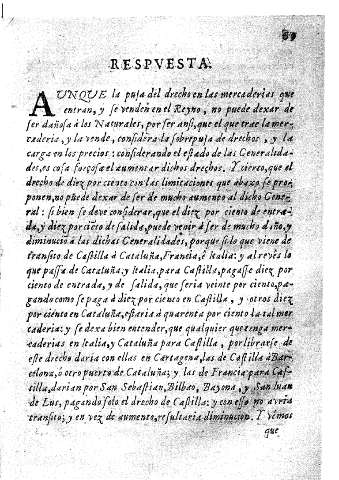 89
RESPVESTA.
AUNQUE la puja del drecho en las mercaderias que
entran, y se venden en el Reyno, no puede dexar de
ser dañosa à los Naturales, por ser ansi, que el que trae la mer-
caderia, y la vende, considera la sobrepuja de drechos, y la
carga en los precios: considerando el estado de las Generalida-
des, es cosa forçosa el aumentar dichos drechos. Y cierto, que el
drecho de diez por ciento con las limitaciones que abaxo se pro-
ponen, no puede dexar de ser de mucho aumento al dicho Gene-
ral: si bien se deve considerar, que el diez por ciento de entra-
da, y diez por ciẽto de salida, puede venir à ser de mucho daño, y
diminuciõ a las dichas Generalidades, porque si lo que viene de
transito de Castilla à Cataluña, Francia, è Italia: y al revès lo
que passa de Cataluña, y Italia, para Castilla, pagasse diez por
ciento de entrada, y de salida, que seria veinte por ciento, pa-
gando como se paga à diez por ciento en Castilla, y otros diez
por ciento en Cataluña, estaria à quarenta por ciento la tal mer-
caderia: y se dexa bien entender, que qualquier que tenga mer-
caderias en Italia, y Cataluña para Castilla, por librarse de
este drecho daria con ellas en Cartagena, las de Castilla à Bar-
celona, ò otro puerto de Cataluña; y las de Francia para Cas-
tilla, darian por San Sebastian, Bilbao, Bayona, y San Iuan
de Lus, pagando solo el drecho de Castilla: y con esso no avria
transito; y en vez de aumento, resultaria diminucion. Y vemos
que